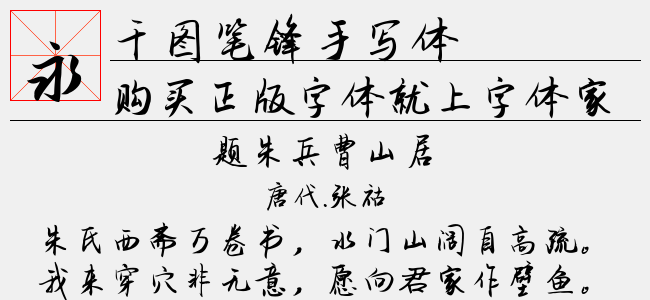 永
千图笔锋手写体
购买正版字体就上字体家
题朱兵曹山居
唐代.张祜
朱氏西斋万卷书，水门山阔自高疏。
我来穿穴非无意，愿向君家作壁鱼。